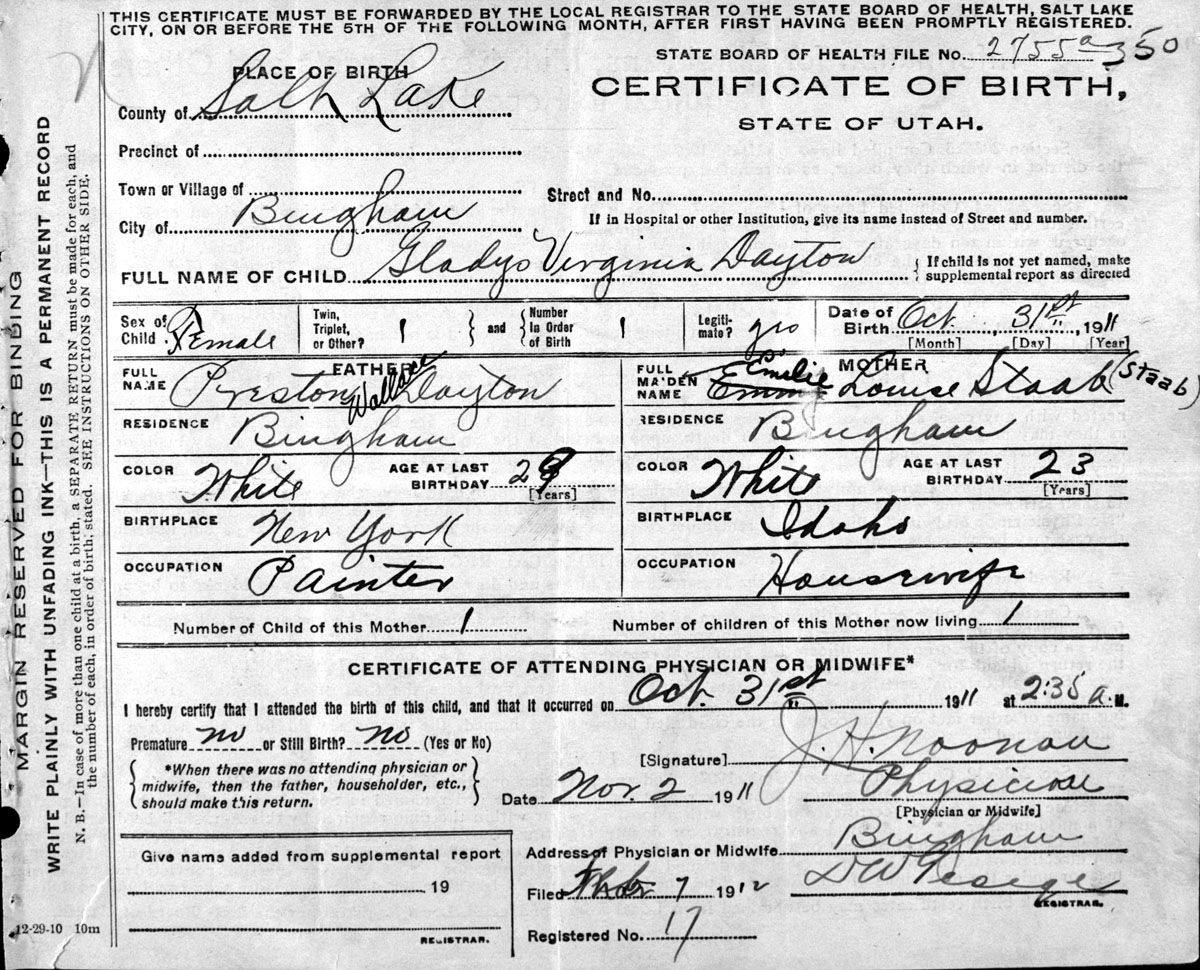 THIS CERTIFICATE MUST BE FORWARDED BY THE LOCAL REGISTRAR TO THE STATE BOARD OF HEALTH, SALT LAKE
CITY, ON OR BEFORE THE 5TH OF THE FOLLOWING MONTH, AFTER FIRST HAVING BEEN PROMPTLY REGISTERED.
STATE BOARD OF HEALTH FILE No. 2755a 350
PLACE OF BIRTH
CERTIFICATE OF BIRTH,
STATE OF UTAH.
County of Salt Lake
Precinct of
Town or Village of
Street and No.
City of Bingham
If in Hospital or other Institution, give its name instead of Street and number.
FULL NAME OF CHILD Gladys Virginia Dayton
{ If child is not yet named, make
supplemental report as directed
Sex of Child Female
Twin, Triplet, or Other? 1 } and { Number in Order of Birth 1
Legitimate? yes
Date of Birth Oct 31st, 1911
[Month] [Day] [Year]
FATHER
FULL NAME Preston Wallace Dayton
RESIDENCE Bingham
COLOR White AGE AT LAST BIRTHDAY 29 [Years]
BIRTHPLACE New York
OCCUPATION Painter
MOTHER
FULL MAIDEN NAME Emilie Louise Staab (Staab)
RESIDENCE Bingham
COLOR White AGE AT LAST BIRTHDAY 23 [Years]
BIRTHPLACE Idaho
OCCUPATION Housewife
Number of Child of this Mother 1 Number of children of this Mother now living 1
CERTIFICATE OF ATTENDING PHYSICIAN OR MIDWIFE*
I hereby certify that I attended the birth of this child, and that it occurred on Oct. 31st 1911 at 2:35 a.M.
Premature no or Still Birth? no (Yes or No)
{ *When there was no attending physician or
midwife, then the father, householder, etc.,
should make this return. }
[Signature] J. H. Noonan
Date Nov. 2 1911 Physician
[Physician or Midwife]
Address of Physician or Midwife Bingham
Filed 7 1912 D W George
REGISTRAR.
Registered No. 17
Give name added from supplemental report
19
REGISTRAR.
12-29-10 10m
MARGIN RESERVED FOR BINDING
WRITE PLAINLY WITH UNFADING INK—THIS IS A PERMANENT RECORD
N. B.—In case of more than one child at a birth, a SEPARATE RETURN must be made for each, and
the number of each, in order of birth, stated. SEE INSTRUCTIONS ON OTHER SIDE.